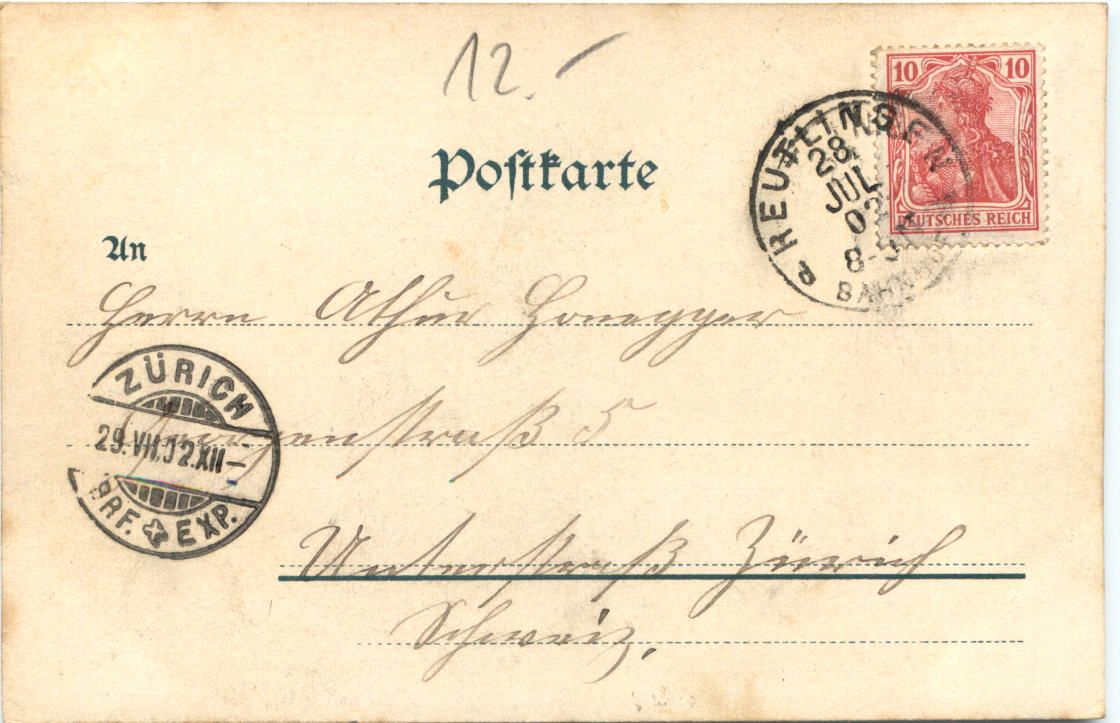 12.–
10 10
DEUTSCHES REICH
REUTLINGEN
28
JUL
02
8-9
BAHNHOF
Postkarte
An
Herrn Athur Honegger
ZÜRICH
29.VII.02.XII–
BRF. EXP.
straß 5
Unterstraß Zürich
Schweiz.